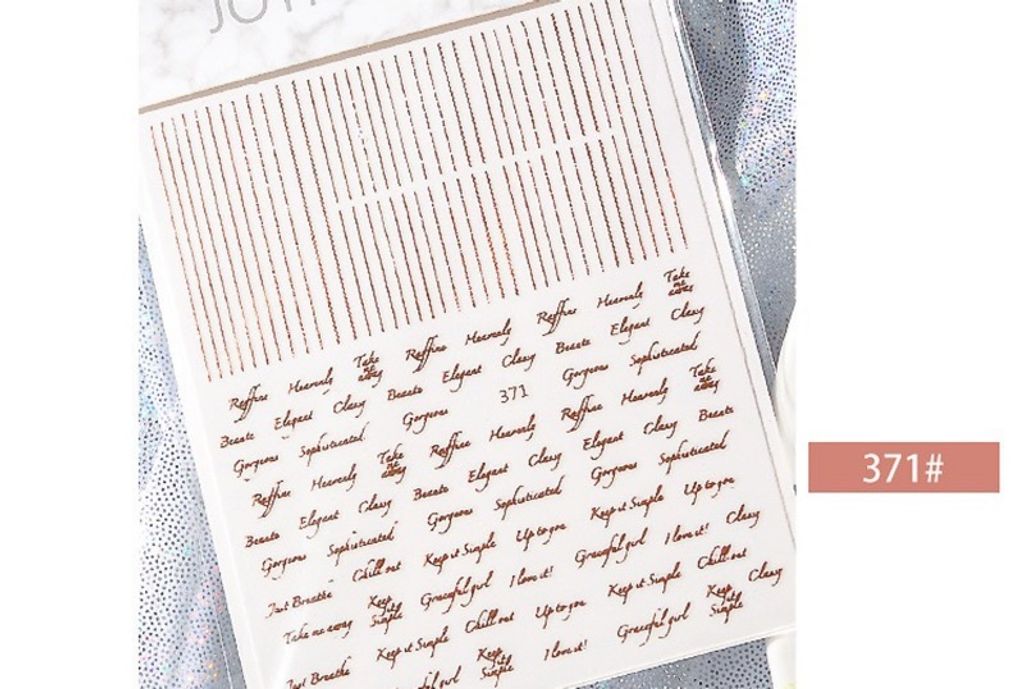 Take me away
Raffine Heavenly Take me away Raffine Heavenly Raffine Heavenly
Beaute Elegant Classy Beaute Elegant Classy Beaute Elegant Classy
Gorgeous Sophisticated Gorgeous 371 Gorgeous Sophisticated
Raffine Heavenly Take me away Raffine Heavenly Raffine Heavenly Take me away
Beaute Elegant Classy Beaute Elegant Classy Elegant Classy Beaute
Gorgeous Sophisticated Gorgeous Sophisticated Gorgeous Sophisticated
Just Breathe Chill out Keep it Simple Up to you Keep it Simple Up to you
Take me away Keep it Simple Graceful girl I love it! Graceful girl I love it! Classy
Just Breathe Keep it Simple Chill out Up to you Keep it Simple Chill out Classy
Keep it Simple I love it! Graceful girl Keep it Simple
371#